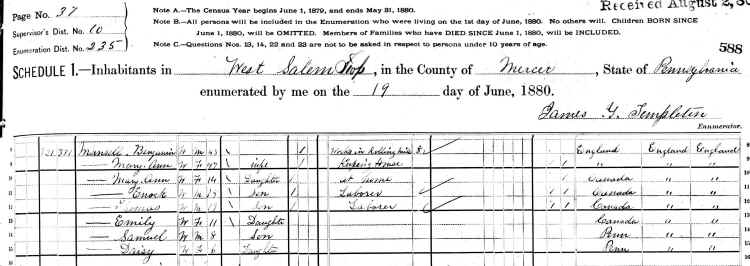 Received August 2, 80
Page No. 37
Supervisor's Dist. No. 10
Enumeration Dist. No. 235
Note A.—The Census Year begins June 1, 1879, and ends May 31, 1880.
Note B.—All persons will be included in the Enumeration who were living on the 1st day of June, 1880. No others will. Children BORN SINCE
June 1, 1880, will be OMITTED. Members of Families who have DIED SINCE June 1, 1880, will be INCLUDED.
Note C.—Questions Nos. 13, 14, 22 and 23 are not to be asked in respect to persons under 10 years of age.
588
SCHEDULE 1.—Inhabitants in West Salem Twp, in the County of Mercer, State of Pennsylvania
enumerated by me on the 19 day of June, 1880.
James G. Templeton
Enumerator.
Benjamin W M 1 Works in Rolling Mill England England England
— Mary Ann W F 47 wife Keeping House " " "
— Mary Ann W F 14 Daughter at home Canada " "
— Enock W M Son Laborer Canada " "
— Thomas W M Son Laborer Canada " "
— Emily W F 11 Daughter Canada " "
— Samuel W M 8 Son Penn " "
— Daisy W F 6 Daughter Penn " "